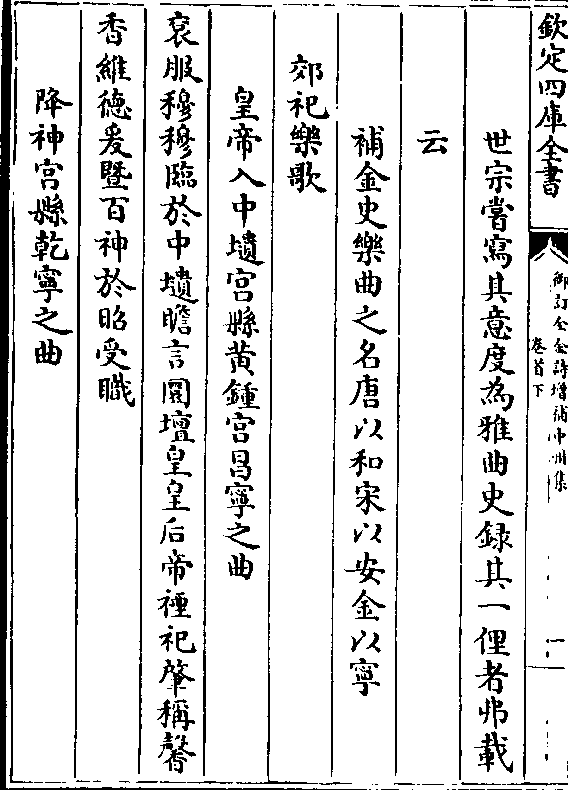 欽定四庫全書
御訂全金詩增補中州集
卷首下
一
世宗嘗寫其意度為雅曲史録其一俚者弗載
云
補金史樂曲之名唐以和宋以安金以寧
郊祀樂歌
皇帝入中壝宫縣黄鍾宫昌寧之曲
衮服穆穆臨於中壝瞻言圜壇皇皇后帝禋祀肇稱馨
香維德爰暨百神於昭受職
降神宫縣乾寧之曲